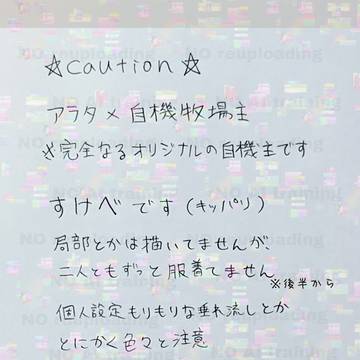 NO reuploading
☆caution☆
アラタ×自機牧場主
※完全なるオリジナルの自機主です
NO AI training
すけべです(キッパリ)
NO reuploading
局部とかは描いてませんが、
二人ともずっと服着てません
※後半から
個人設定もりもりな垂れ流しとか
とにかく色々と注意